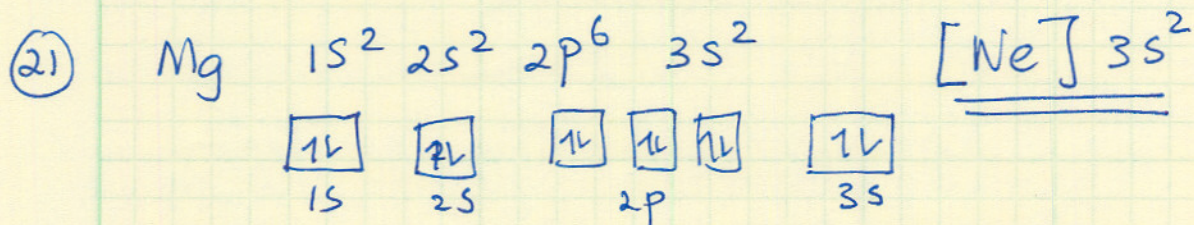 21 Mg 1s² 2s² 2p⁶ 3s² [Ne] 3s²
↑↓ ↑↓ ↑↓ ↑↓ ↑↓ ↑↓
1s 2s 2p 3s